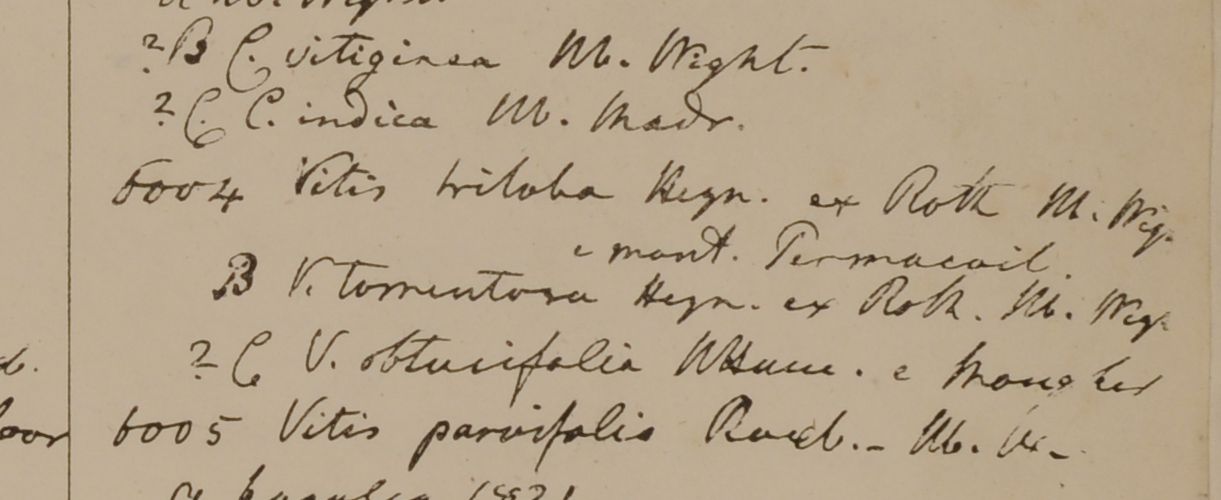 ? B C. vitiginea M. Wight.
? C. C. indica M. Madr.
6004 Vitis triloba Heyn. ex Roth M. Wig.
e mont. Permacoil.
B V. tomentosa Heyn. ex Roth. M. Wig.
? C V. obtusifolia e
6005 Vitis parvifolia Roxb. - M.